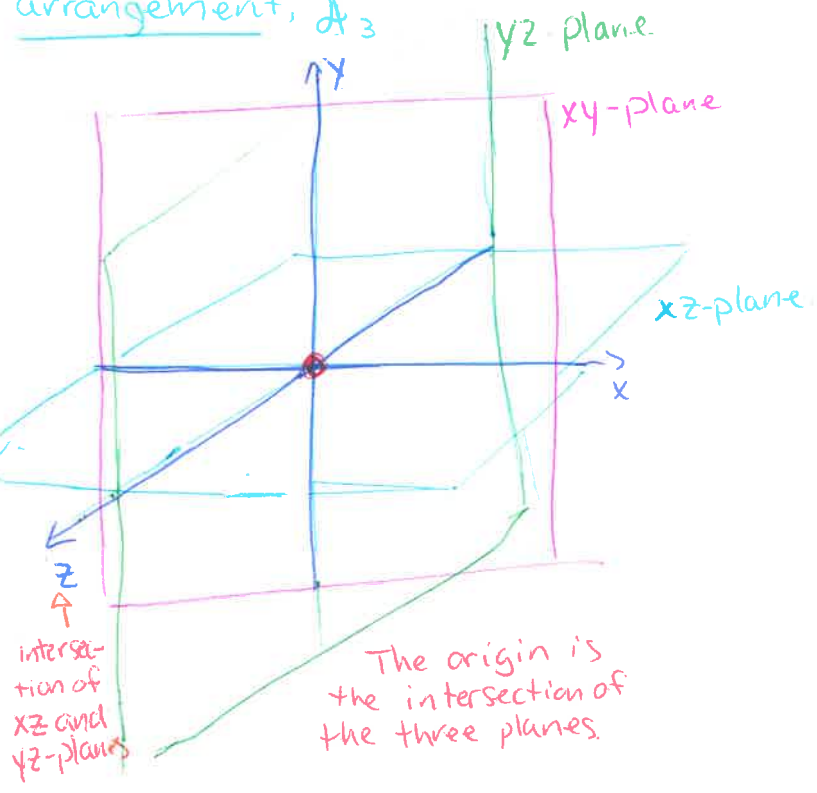 arrangement, A3
yz-plane
y
xy-plane
xz-plane
x
z
intersec-
tion of
xz and
yz-plane
The origin is
the intersection of
the three planes.